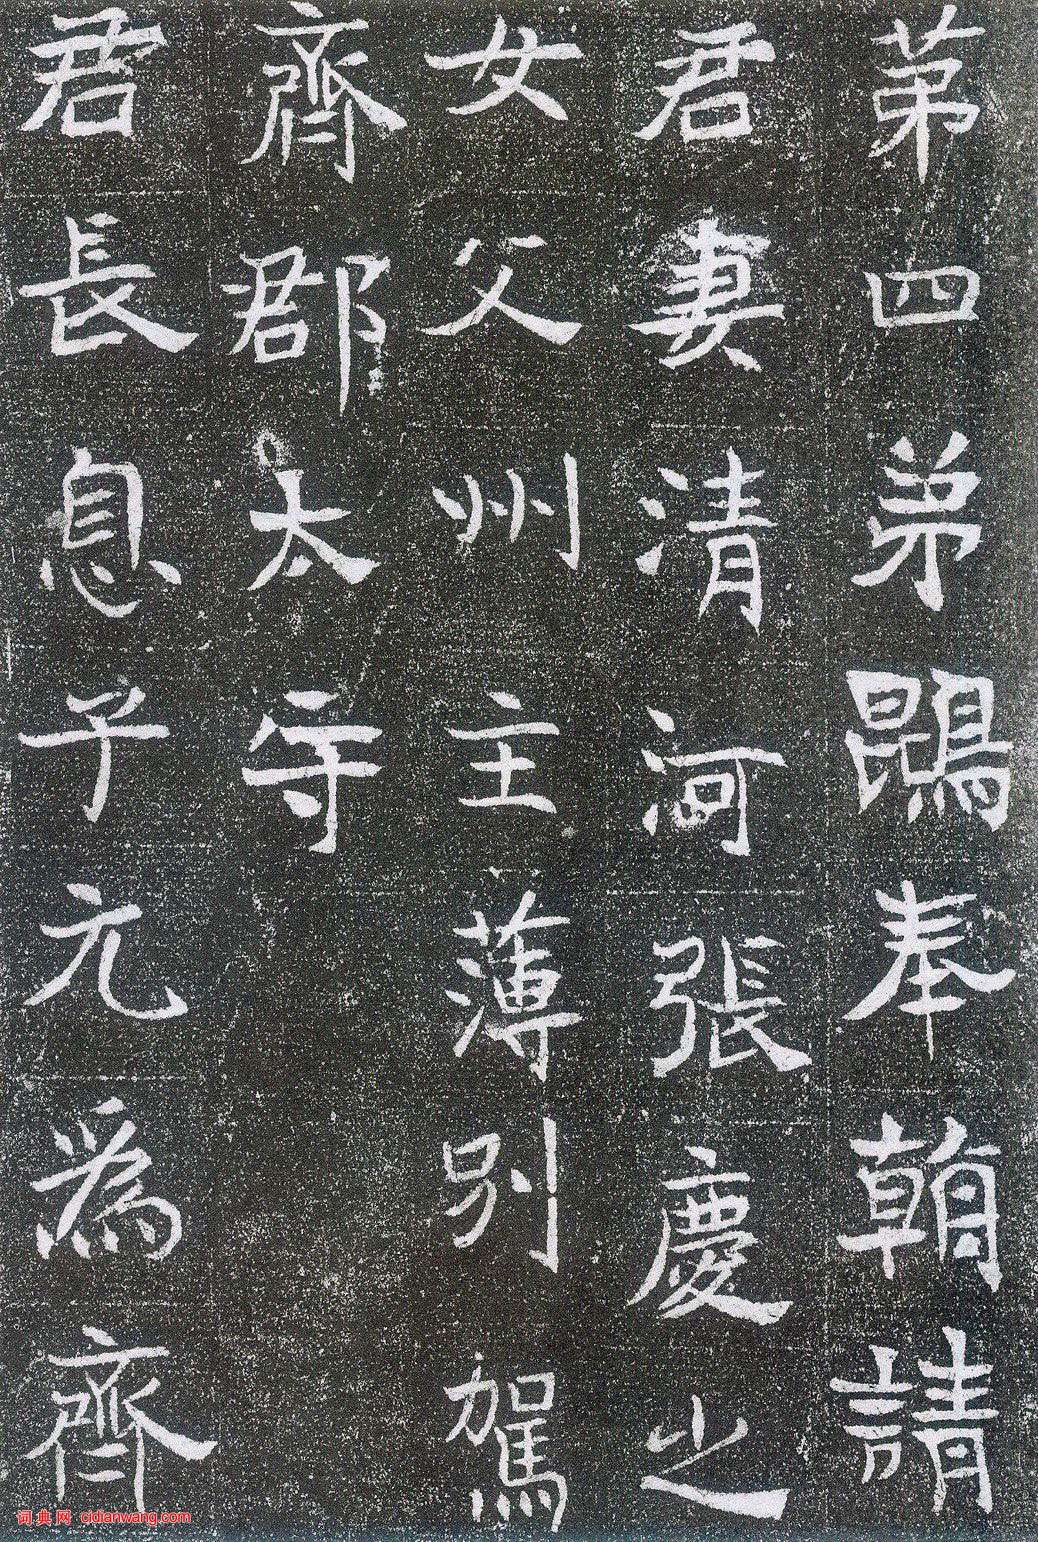 苐四弟鷼奉朝請
君妻清河張慶之
女父州主薄別駕
齊郡太守
君長息子元為齊
词典网 cidianwang.com